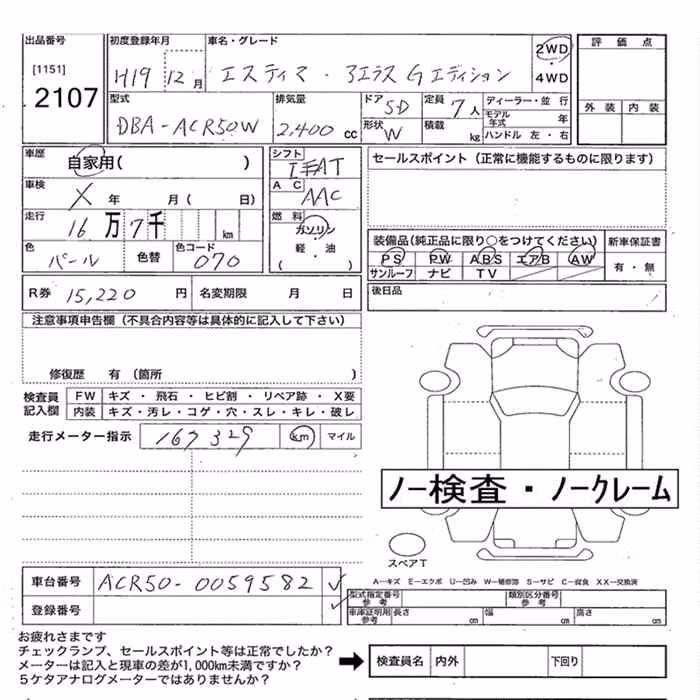 出品番号 初度登録年月 車名・グレード 評価点
[1151] 2107
H19 12月 エスティマ・アエラスGエディション 2WD・4WD
型式 排気量 ドア 5D 定員 7人 ディーラー・並行
DBA-ACR50W 2,400cc 形状 W 積載 kg モデル年式 年
ハンドル 左・右
外装 内装
車歴 自家用( ) シフト IチAT セールスポイント(正常に機能するものに限ります)
車検 X 年 月( 日) AC AAC
走行 16万7千 km 燃料 ガソリン 軽・油 ( )
装備品(純正品に限り○をつけてください) 新車保証書
色 パール 色替 色コード 070
PS PW ABS エアB AW 有・無
サンルーフ ナビ TV
R券 15,220円 名変期限 月 日 後日品
注意事項申告欄(不具合内容等は具体的に記入して下さい)
修復歴 有(箇所 )
検査員記入欄 FW キズ・飛石・ヒビ割・リペア跡・X要
内装 キズ・汚レ・コゲ・穴・スレ・キレ・破レ
走行メーター指示 167329 km マイル
ノー検査・ノークレーム
スペアT
A―キズ E―エクボ U―凹み W―補修跡 S―サビ C―腐食 XX―交換済
車台番号 ACR50-0059582
型式指定番号 参考 類別区分番号 参考
登録番号 車庫証明用 参考 長さ cm 幅 cm 高さ cm
お疲れさまです
チェックランプ、セールスポイント等は正常でしたか?
メーターは記入と現車の差が1,000km未満ですか?
5ケタアナログメーターではありませんか?
検査員名 内外 下回り